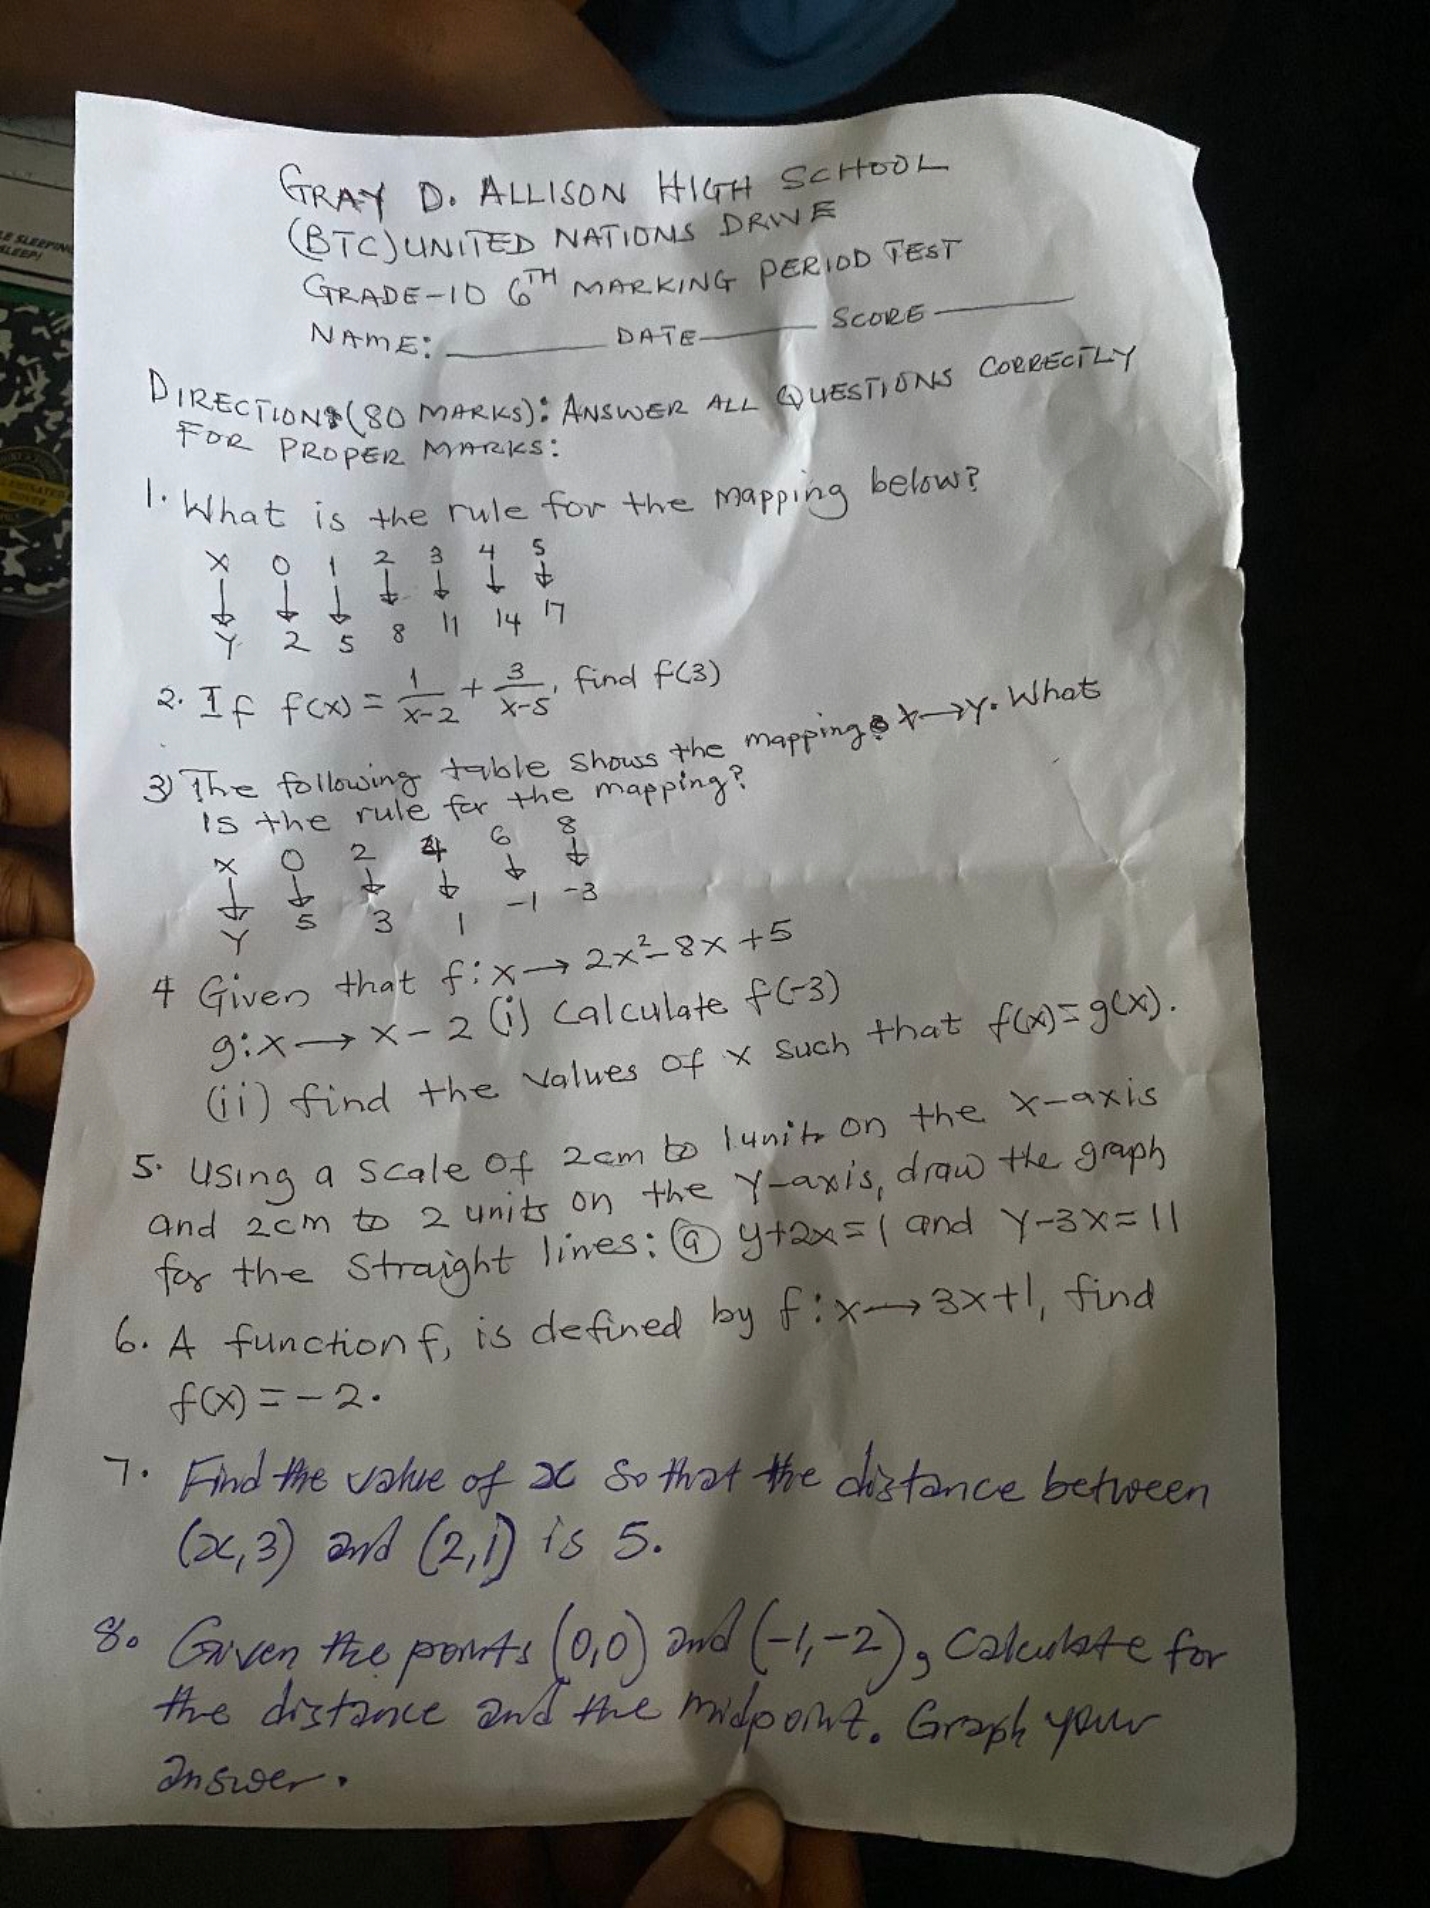 LE SLEEPING
SLEEP!
GRAY D. ALLISON HIGH SCHOOL
(BTC) UNITED NATIONS DRIVE
GRADE-10 6TH MARKING PERIOD TEST
NAME: ________ DATE ________ SCORE ________
DIRECTIONS (80 MARKS): ANSWER ALL QUESTIONS CORRECTLY
FOR PROPER MARKS:
1. What is the rule for the mapping below?
X 0 1 2 3 4 5
↓ ↓ ↓ ↓ ↓ ↓ ↓
Y 2 5 8 11 14 17
2. If f(x) = 1/(x-2) + 3/(x-5), find f(3)
3) The following table shows the mapping x→y. What
is the rule for the mapping?
X 0 2 4 6 8
↓ ↓ ↓ ↓ ↓ ↓
Y 5 3 1 -1 -3
4 Given that f:x→2x²-8x+5
g:x→x-2 (i) Calculate f(-3)
(ii) find the values of x such that f(x)=g(x).
5. Using a scale of 2cm to 1 unit on the x-axis
and 2cm to 2 units on the Y-axis, draw the graph
for the straight lines: (a) y+2x=1 and Y-3x=11
6. A function f, is defined by f:x→3x+1, find
f(x)=-2.
7. Find the value of x so that the distance between
(x,3) and (2,1) is 5.
8. Given the points (0,0) and (-1,-2), calculate for
the distance and the midpoint. Graph your
answer.